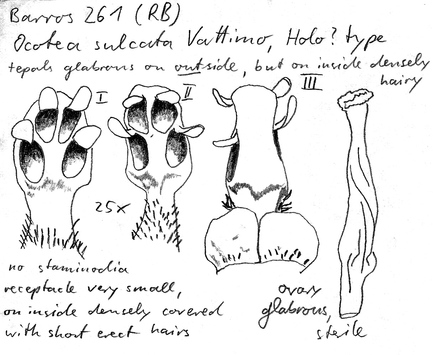 Barros 261 (RB)
Ocotea sulcata Vattimo, Holo? type
tepals glabrous on outside, but on inside densely
hairy
I
II
III
25x
no staminodia
receptacle very small,
on inside densely covered
with short erect hairs
ovary
glabrous,
sterile